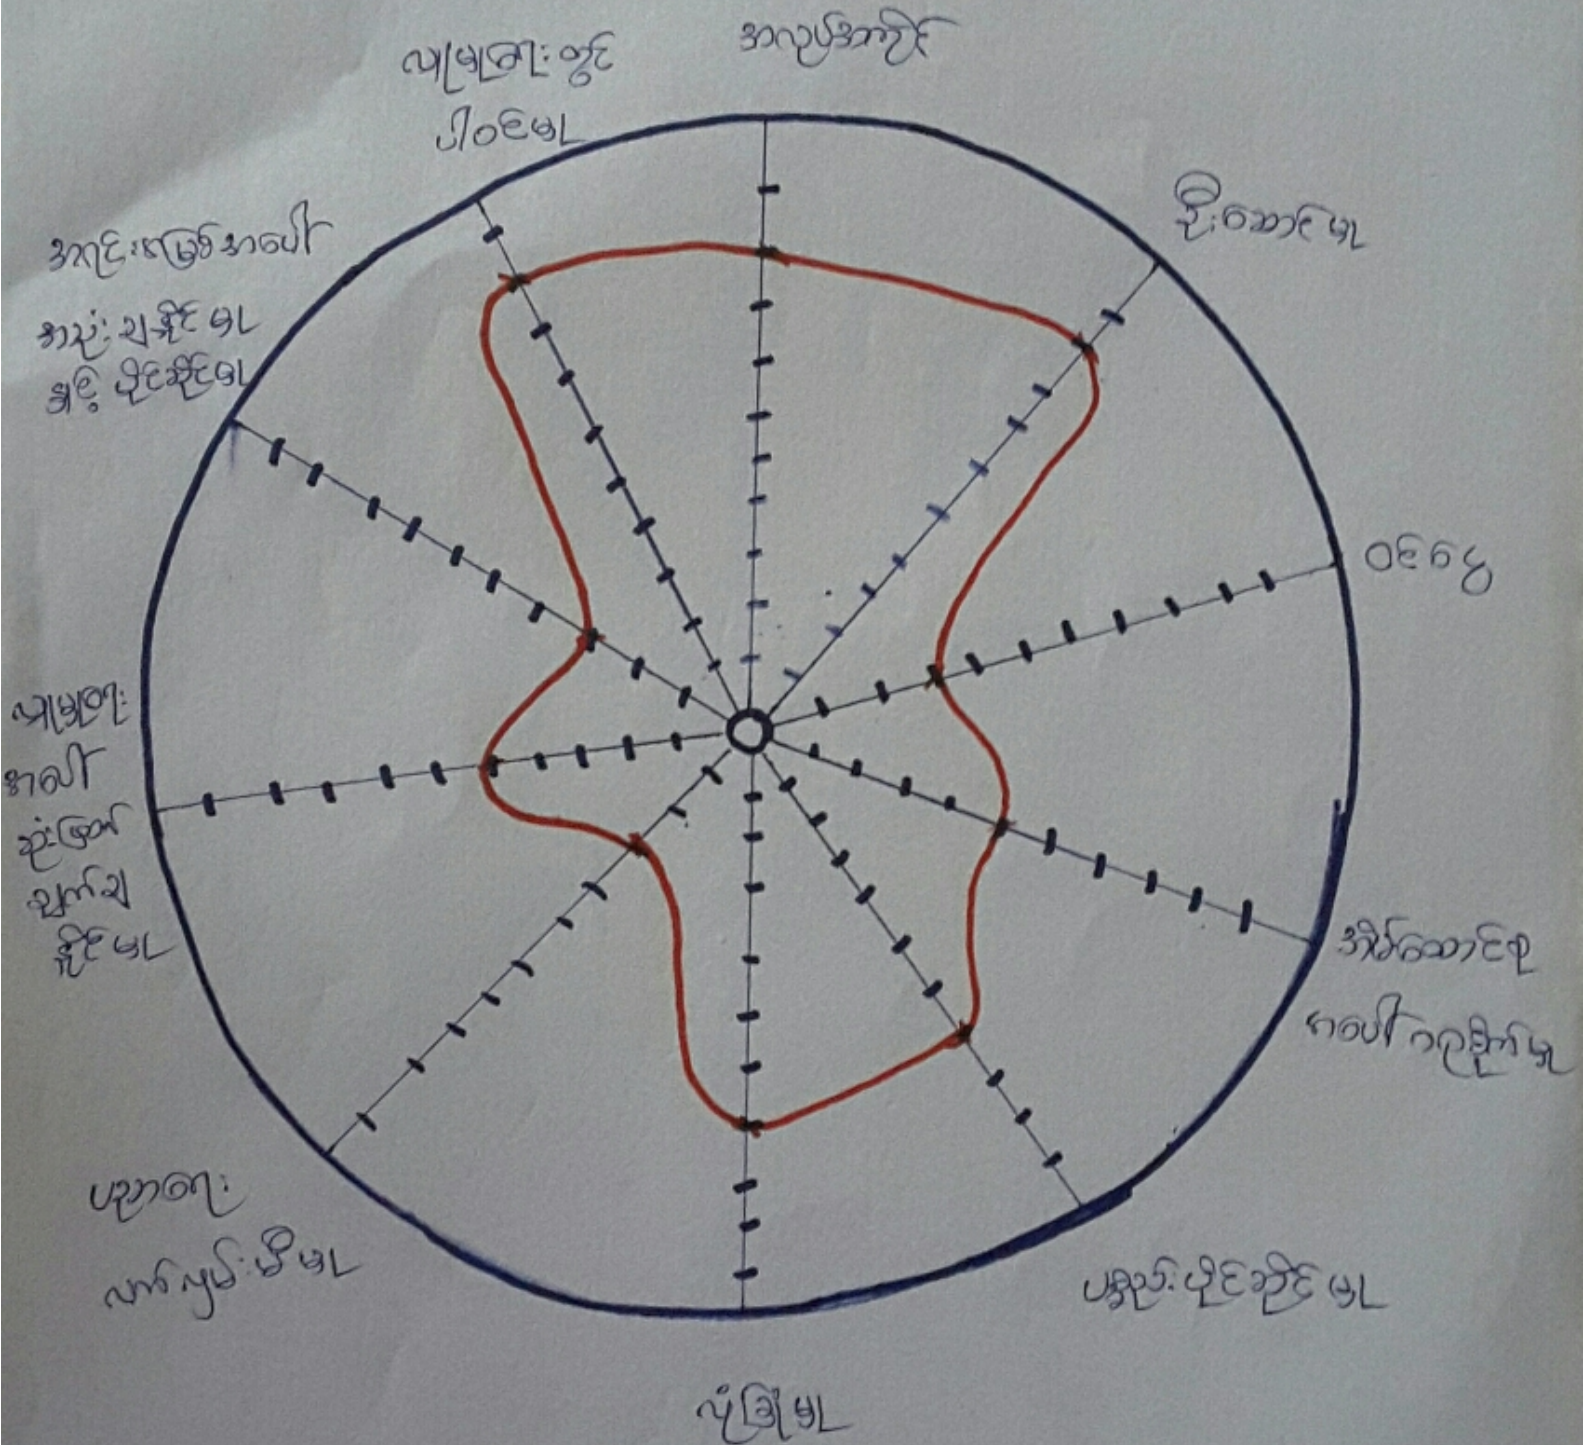 အလုပ်အကိုင်
ဦးဆောင်မှု
ဝင်ငွေ
အိမ်ထောင်စု
အပေါ် ဂရုစိုက်မှု
ပစ္စည်းပိုင်ဆိုင်မှု
လုံခြုံမှု
ပညာရေး
လက်လှမ်းမီမှု
လူမှုရေး
အပေါ်
ဆုံးဖြတ်
ချက်ချ
နိုင်မှု
အရင်းအမြစ်အပေါ်
အသုံးချနိုင်မှု
နှင့် ပိုင်ဆိုင်မှု
လူမှုရေးတွင်
ပါဝင်မှု